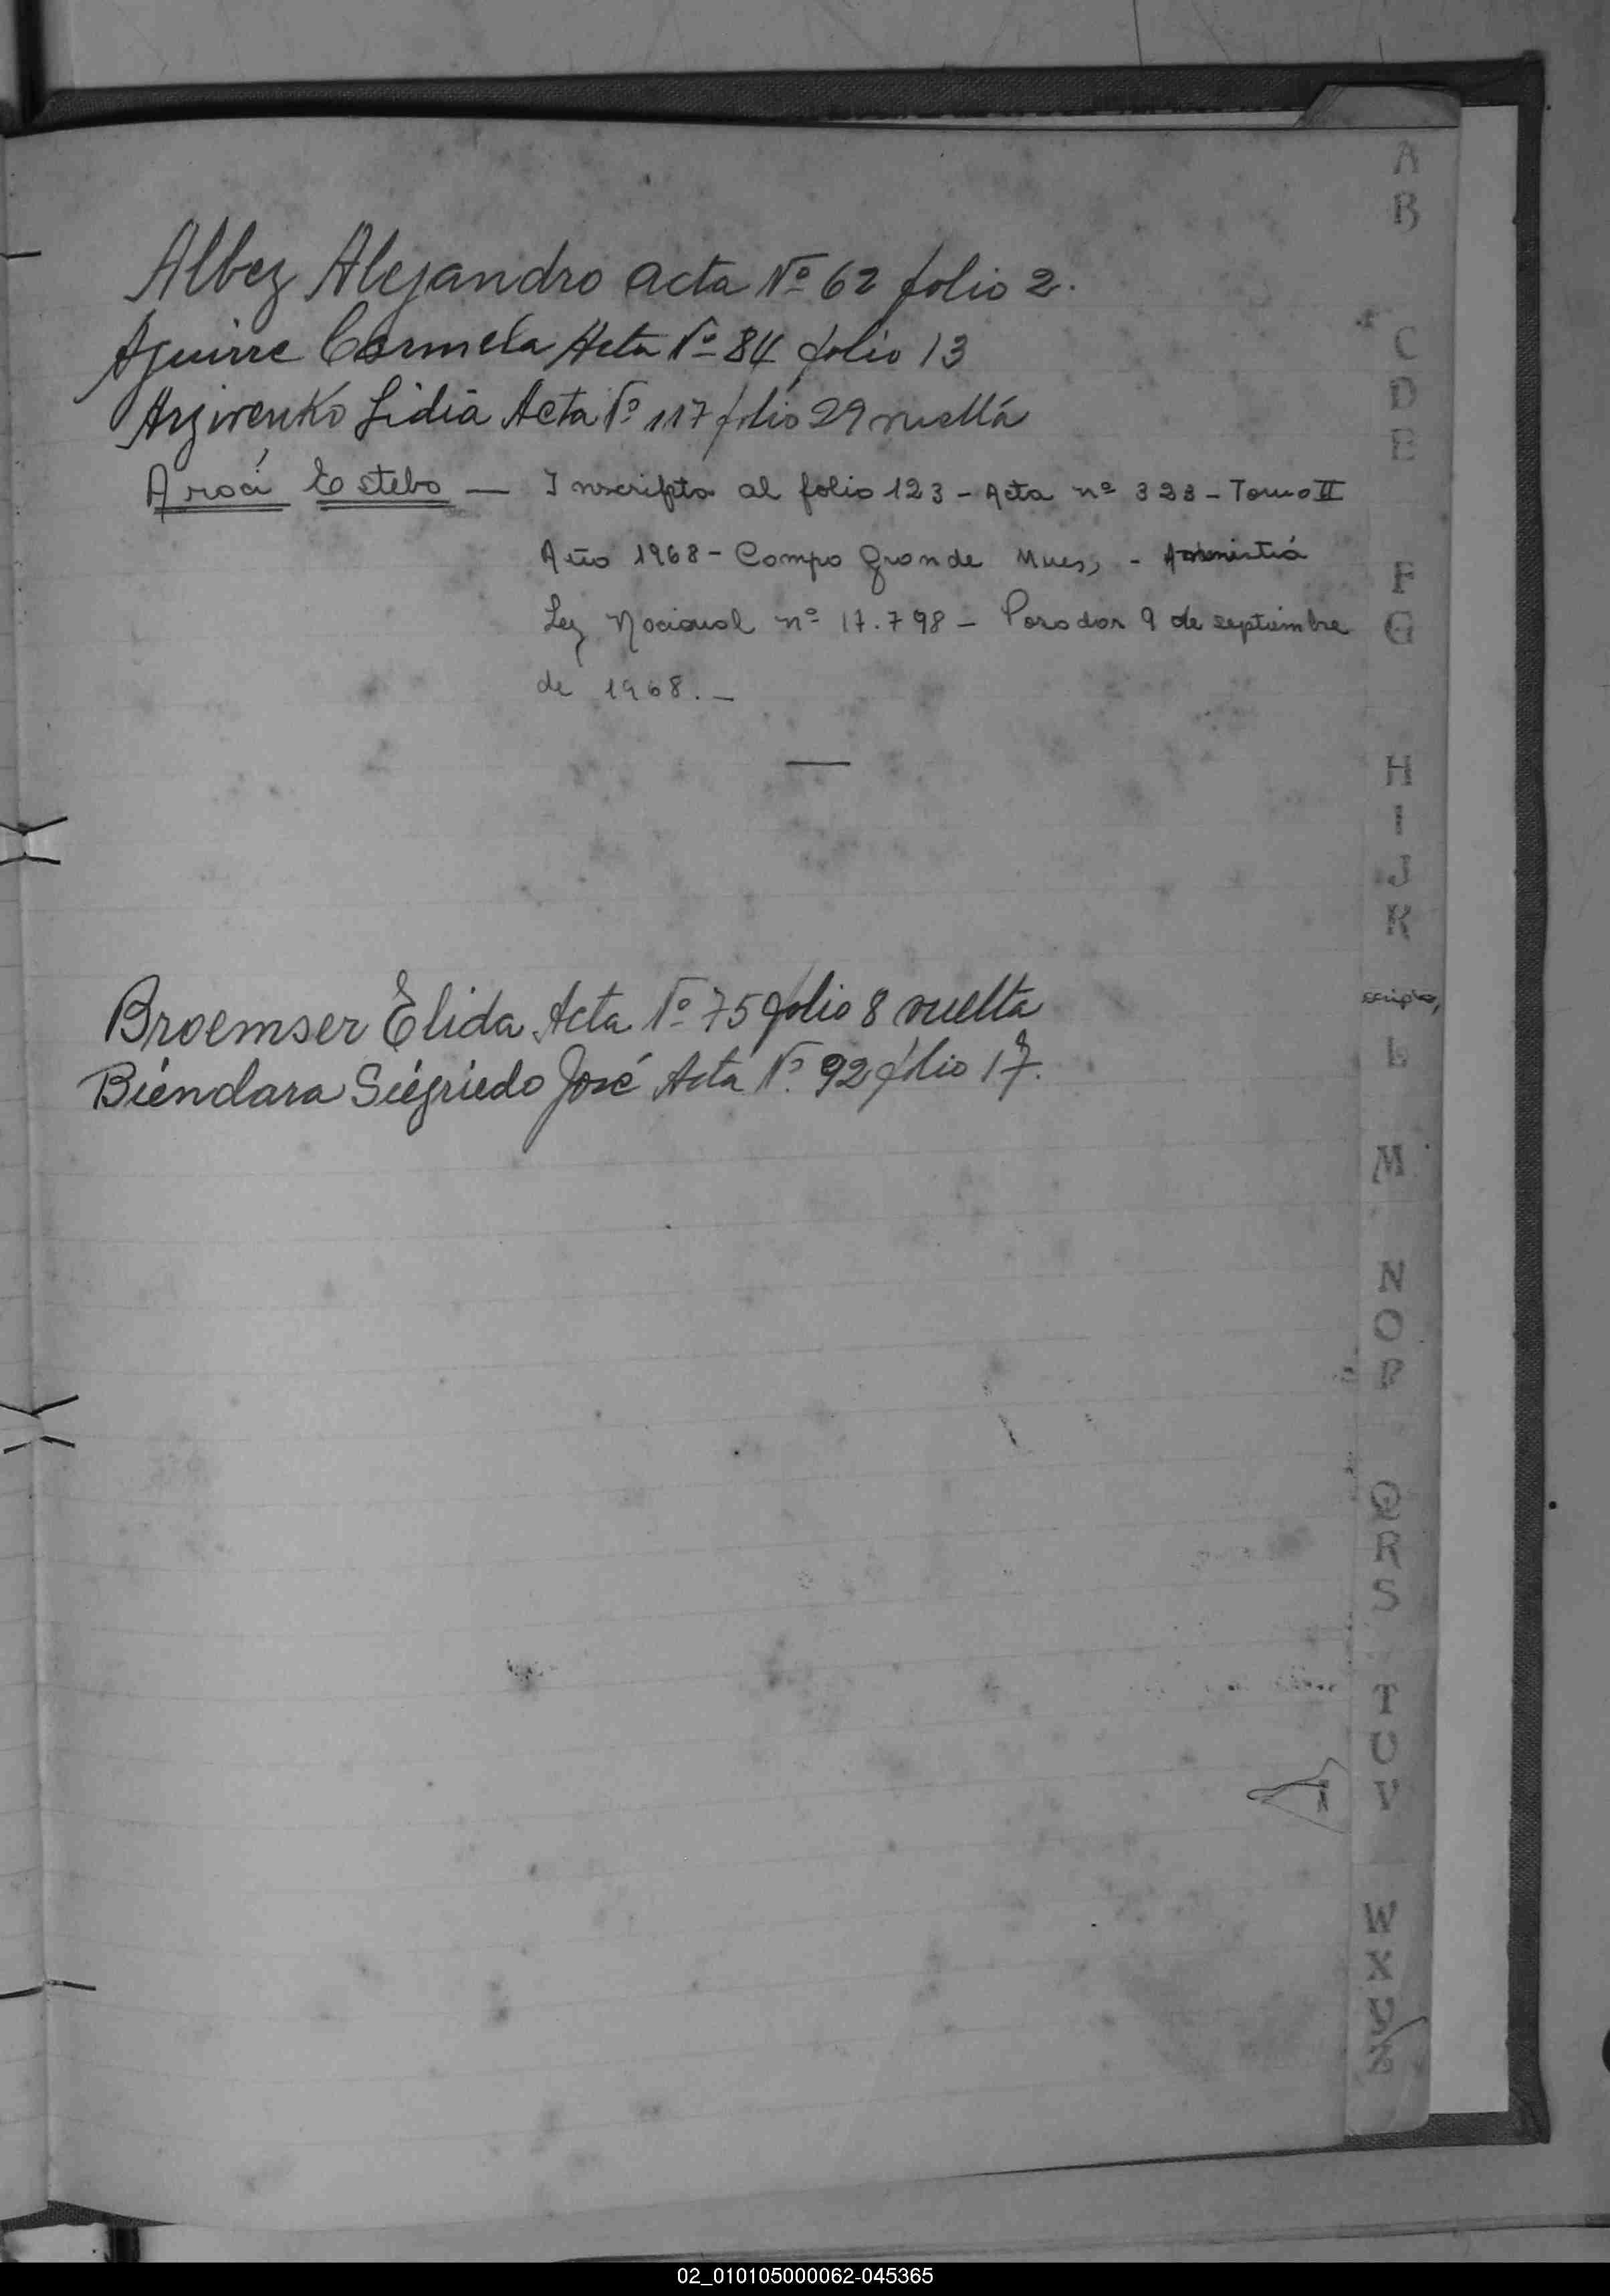 Albez Alejandro acta Nº 62 folio 2.
Aguirre Carmela Acta Nº 84 folio 13
Arzirenko Lidia Acta Nº 117 folio 29 vuelta
Aroci Estebo — Inscripto al folio 123 - Acta nº 323 - Tomo II
Año 1968 - Campo Grande Mnes, - Amnistiá
Ley Nacional nº 17.798 - Parador 9 de septiembre
de 1968. -
Broemser Elida Acta Nº 75 folio 8 vuelta
Biendara Siegriedo José Acta Nº. 92 folio 17.
A
B
C
D
E
F
G
H
I
J
K
L
M
N
O
P
Q
R
S
T
U
V
W
X
02_010105000062-045365